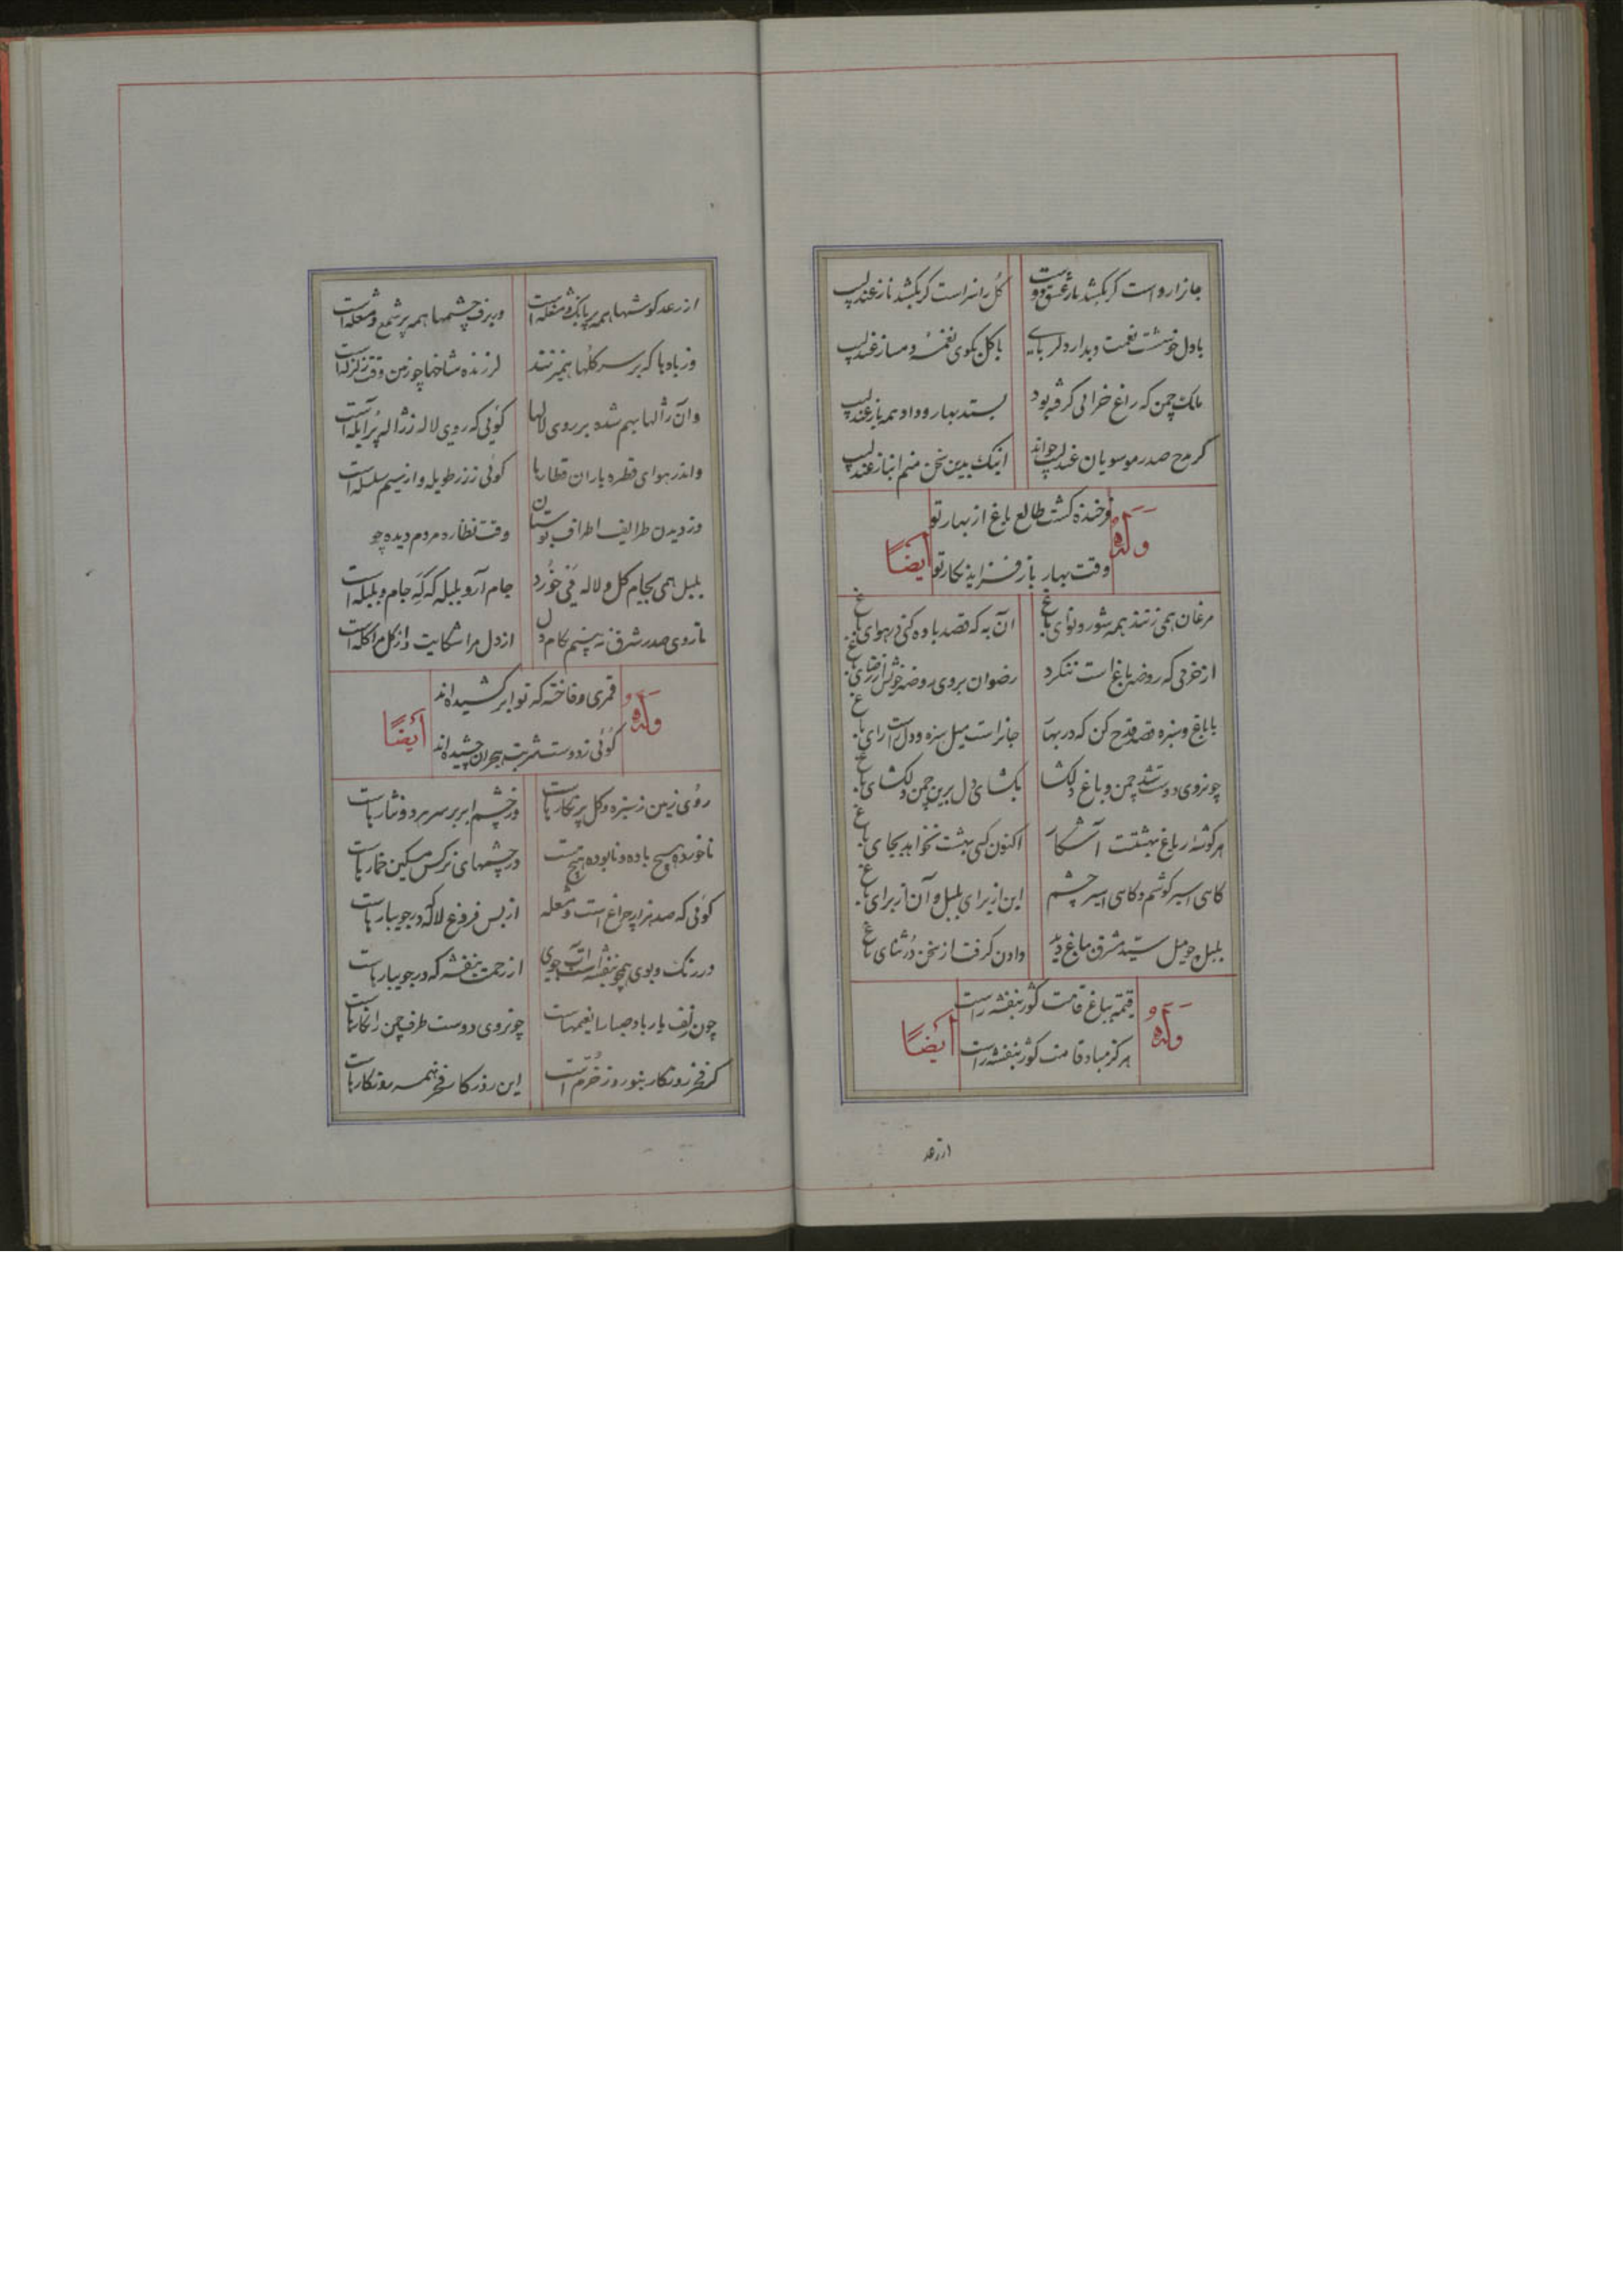 جانرا رواست گر بکشد ناز عشق دوست گل را سزاست گر بکشد ناز عندلیب
با دل خوشست نغمت دیدار دلربای با گل بگوی نغمهٔ دمساز عندلیب
ملک چمن که زاغ خزانی گرفته بود بستد بهار و داد همه باز عندلیب
گر مدح صدر موسویان عندلیب خواند اینک بدین سخن منم انباز عندلیب
وله
فرخنده گشت طالع باغ از بهار تو
وقت بهار باز فزاید نگار تو
ایضاً
مرغان همی زنند همه شور و نوای باغ آن به که قصد باده کنی در هوای باغ
از خرمی که روضه باغ است ننگرد رضوان بروی روضه خویش از رضای باغ
با باغ و سبزه قصد قدح کن که در بهار جانراست میل سبزه و دل راست رای باغ
چون روی دوست شد چمن و باغ دلگشا بگشای دل برین چمن دلگشای باغ
هر گوشه ز باغ بهشتست آشکار اکنون کسی بهشت نخواهد بجای باغ
گاهی اسیر گوشم و گاهی اسیر چشم این از برای بلبل و آن از برای باغ
بلبل چو میل سید مشرق بباغ دید دادن گرفت از سخن در ثنای باغ
وله
قیمت بباغ قامت گوژ بنفشه راست
هرگز مباد قامت گوژ بنفشه راست
ایضاً
از رعد
از رعد گوشها همه پر بانگ و مشغله است وز برق چشمها همه پر شمع و مشعله است
وز بادها که بر سر گلها همی زنند لرزنده شاخها چو زمین وقت زلزله است
وان ژالها بهم شده بر روی لالها گوئی که روی لاله ز ژاله پر آبله است
واندر هوای قطره باران قطارها گوئی ز زر طویله و از سیم سلسله است
وز دیدن طرایف اطراف بوستان وقت نظاره مردم دیده چو
بلبل همی بجام گل و لاله می خورد جام آر و بلبله که گه جام و بلبله است
تا روی صدر شرق نه بینم بکام دل از دل مرا شکایت و از گل مرا گله است
وله
قمری و فاخته که نوا بر کشیده‌اند
گوئی ز دوست شربت هجران چشیده‌اند
ایضاً
روی زمین ز سبزه و گل پر نگارهاست وز چشم ابر بر سر هر دو نثارهاست
ناخورده هیچ باده و نابوده هیچ مست در چشمهای نرگس مسکین خمارهاست
گوئی که صد هزار چراغ است و مشعله از بس فروغ لاله که در جویبارهاست
در رنگ و بوی همچو بنفشه است آب جوی از رحمت بنفشه که در جویبارهاست
چون زلف یار باد صبا را نعیمهاست چون روی دوست طرف چمن را نگارهاست
گر فخر روزگار بنوروز خرم است این روزگار فخر همه روزگارهاست